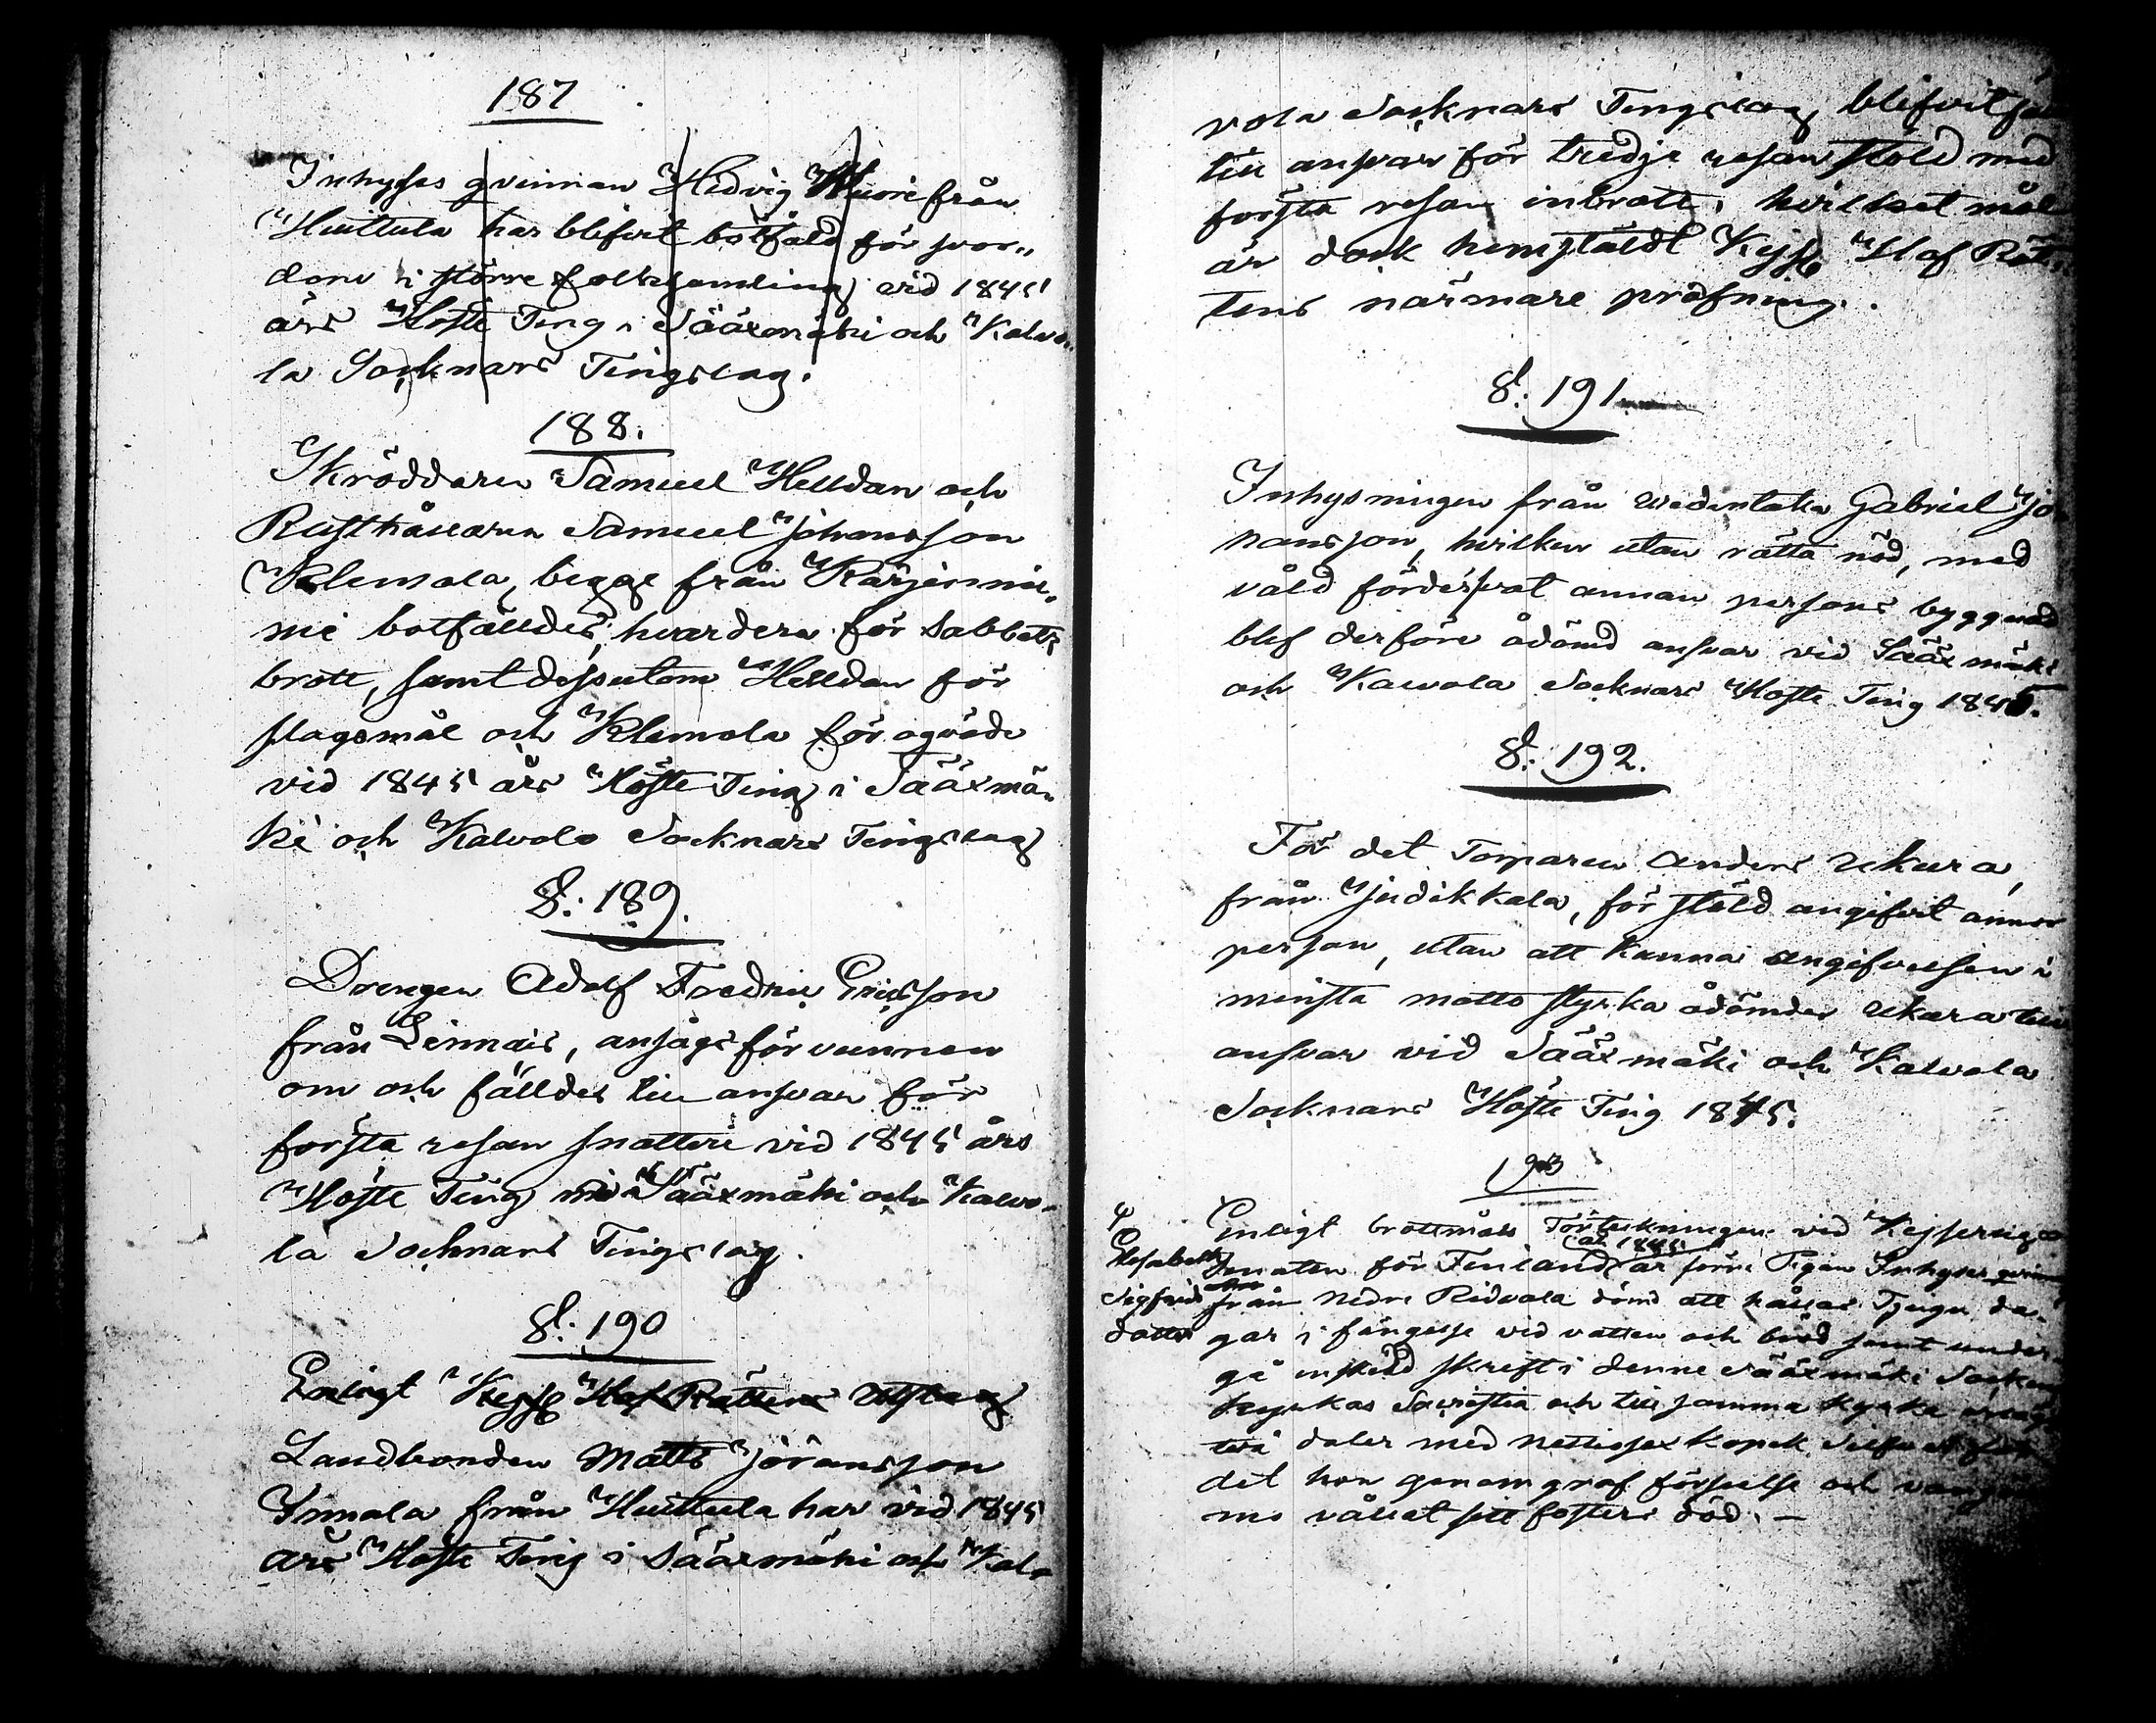 187
Inhyses qvinnan Hedvig från
Huittula har blifvit botfäld för svor„
dom i större folksamling vid 1845
års Höste Ting i Sääxmäki och Kalvo„
la Socknars Tingslag.
188.
Skräddaren Samuel Helldan och
Rusthållaren Samuel Johansson
Klemola, begge från Kärjennie„
mi botfälldes, hvardera för Sabbats
brott, samt dessutom Helldan för
slagsmål och Klemola för oqväde
vid 1845 års Höste Ting i Sääxmä„
ki och Kalvola Socknars Tingslag
§: 189.
Drengen Adolf Fredric Ericsson
från Linnais, ansågs förvunnen
om och fälldes till ansvar för
första resan snatteri vid 1845 års
Höste Ting i Sääxmäki och Kalvo„
la Socknars Tingslag.
§: 190
Enligt Kejs Hof Rättens Utslag
Landbonden Matts Jöransson
Innala från Huittula har vid 1845
års Höste Ting i Sääxmäki och Kal„
vola Socknars Tingslag blifvit
till ansvar för tredje resan stöld med
första resan inbrott, hvilket mål
är dock hemstäldt Kejs Hof Rät„
tens närmare pröfning.
§: 191.
Inhysningen från Wedentaka Gabriel Jo
hansson, hvilken utan rätta nöd, med
våld förderfvat annan persons byggnad
blef derföre ådömd ansvar vid Sääxmäki
och Kalvola Socknars Höste Ting 1845.
§: 192.
För det Torparen Anders Ukura,
från Judikkala, för stöld angifvit annor
person, utan att kunna angifvelsen i
minsta motto styrka ådömdes Ukura till
ansvar vid Sääxmäki och Kalvola
Socknars Höste Ting 1845.
193
Enligt brottmåls Förteckningen vid Kejserliga
år 1845
Senaten för Finland är förre Pigan Inhyses qvin
Elisabeth
Sigfrids
dotter
från Nedre Ridvala dömd att hållas Tjugu da„
gar i fängelse vid vatten och bröd samt under„
gå enskild skrift i denne Sääxmäki Socken
kyrkas Sacristia och till samma kyrka
två daler med nettiosex kopek Silfver
det hon genom grof förseelse och
mo vållat sitt fosters död. –